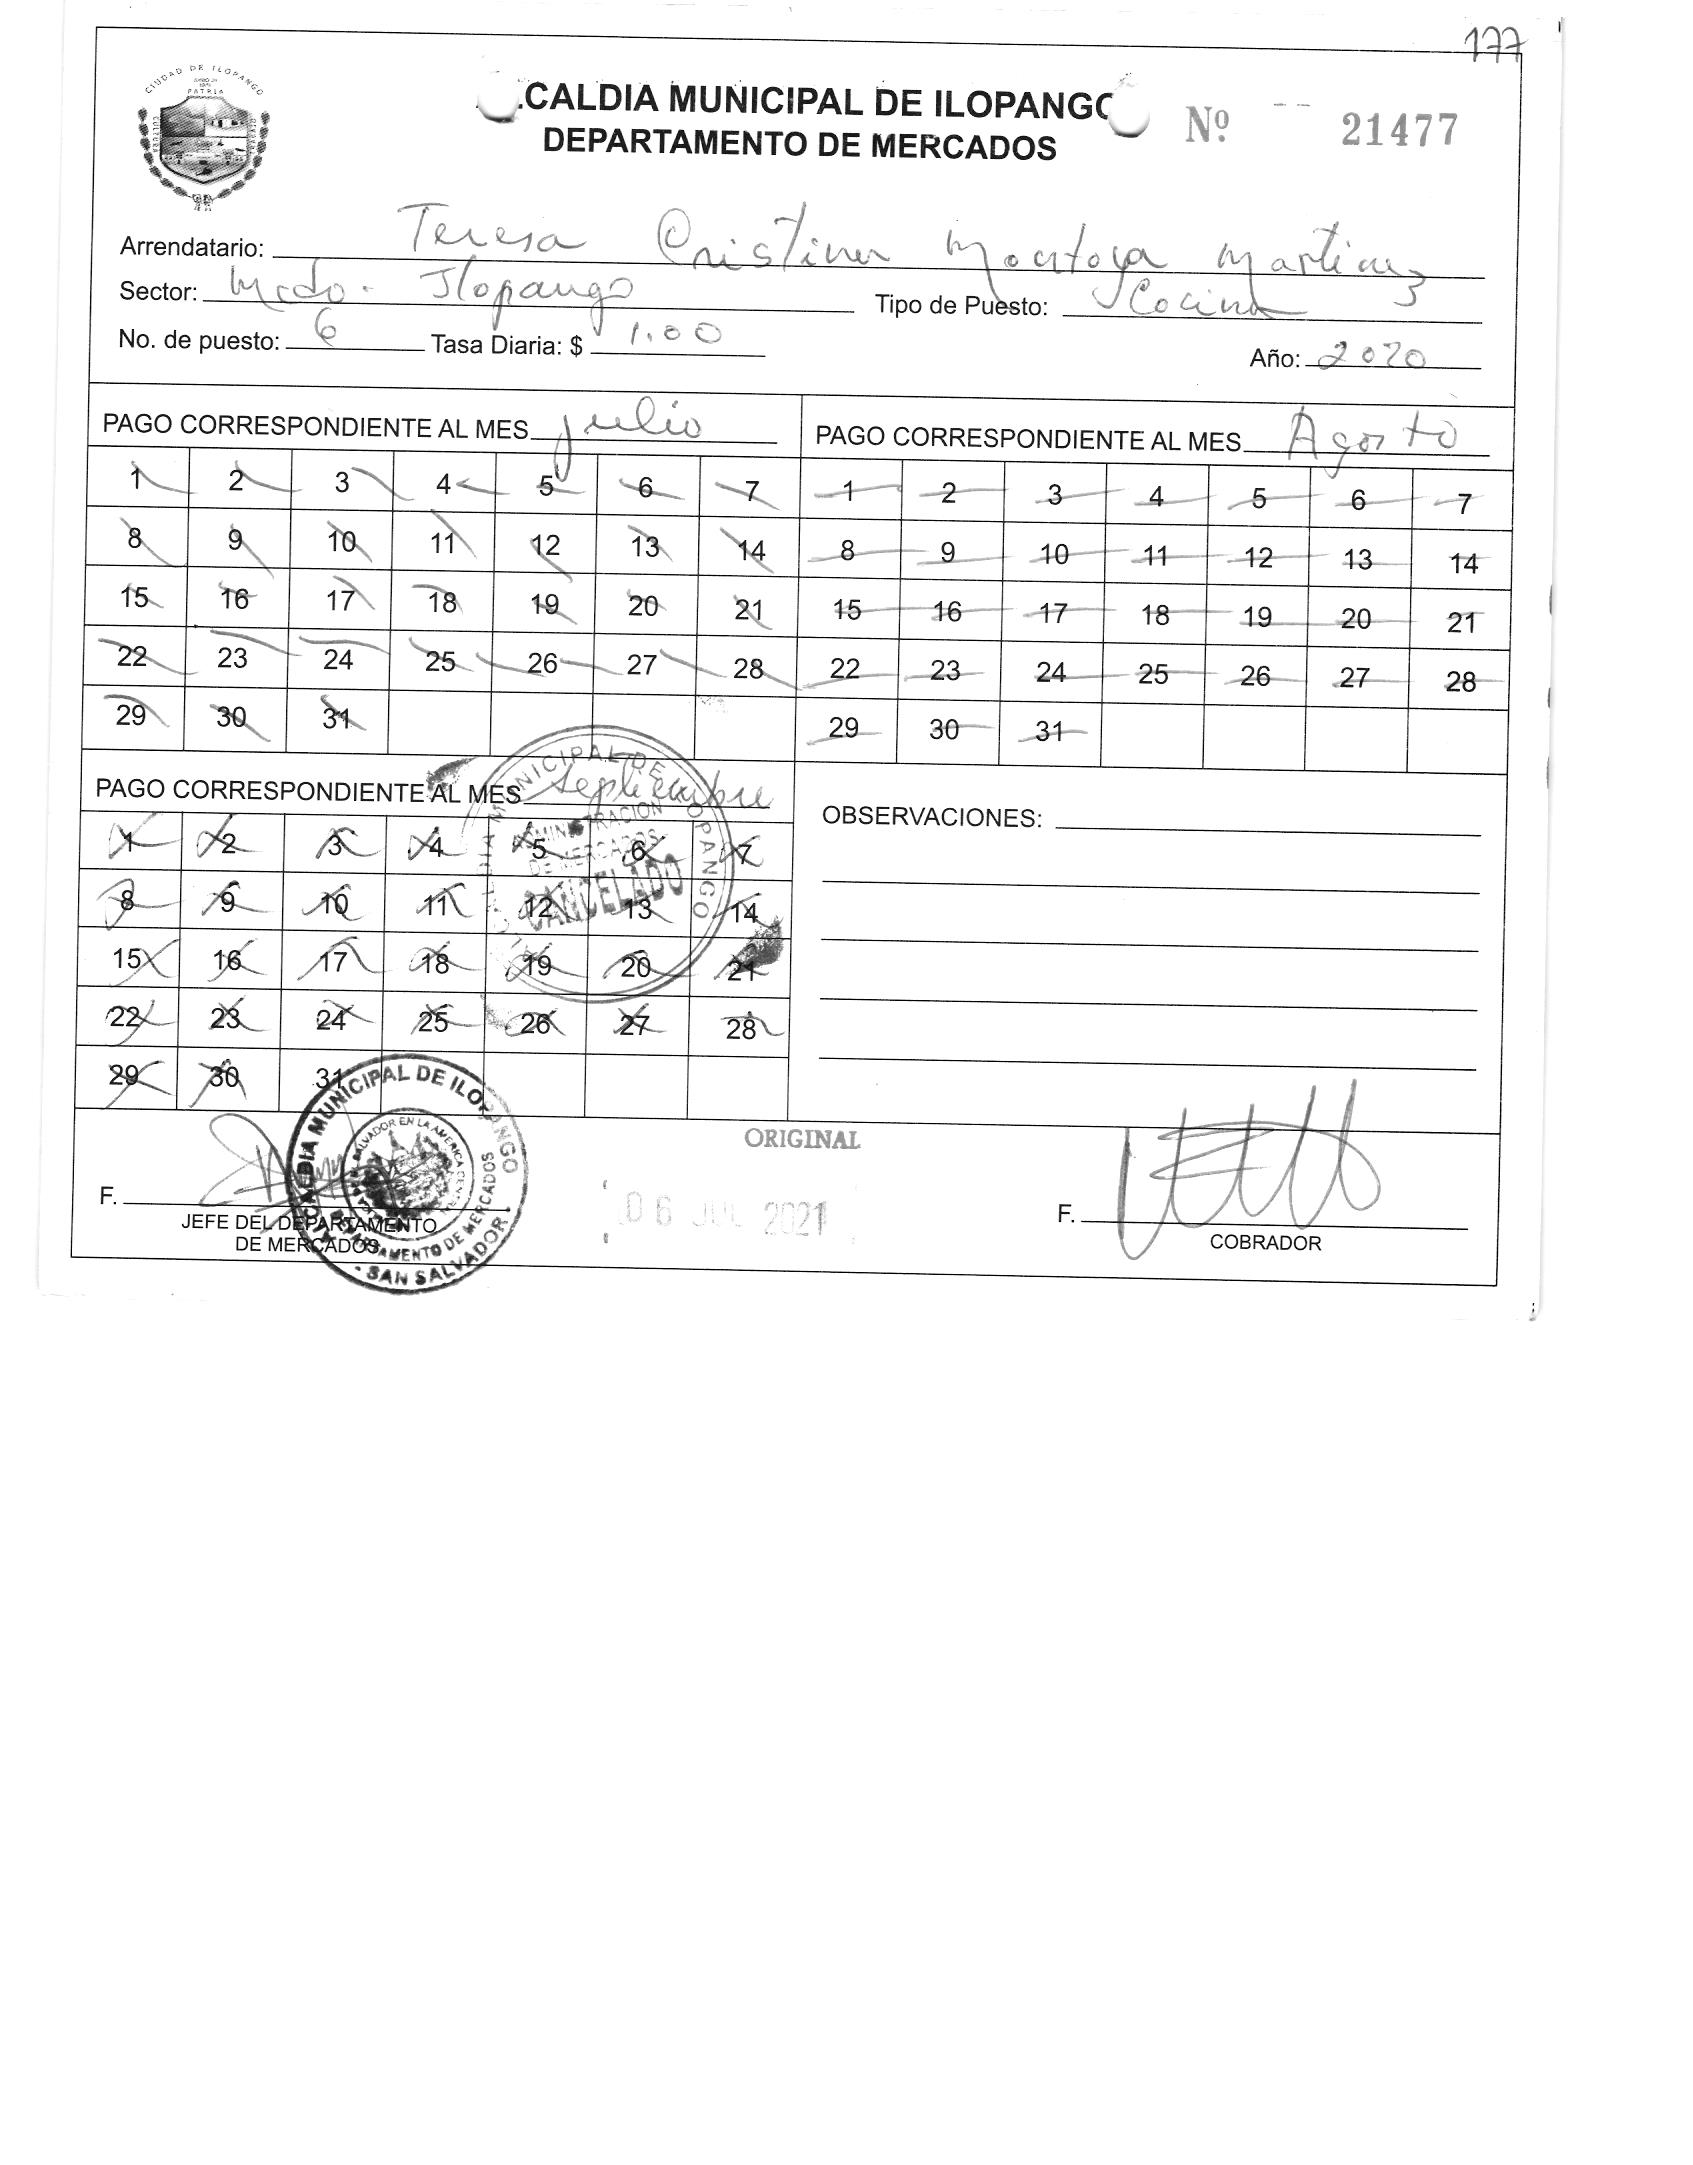 177
CIUDAD DE ILOPANGO
PATRIA
CULTURA
CALDIA MUNICIPAL DE ILOPANGO
DEPARTAMENTO DE MERCADOS
Nº 21477
Arrendatario: Teresa Cristina Montoya Martinez
Sector: Mcdo. Ilopango Tipo de Puesto: Cocina
No. de puesto: 6 Tasa Diaria: $ 1.00 Año: 2020
PAGO CORRESPONDIENTE AL MES julio
1 2 3 4 5 6 7
8 9 10 11 12 13 14
15 16 17 18 19 20 21
22 23 24 25 26 27 28
29 30 31
PAGO CORRESPONDIENTE AL MES Agosto
1 2 3 4 5 6 7
8 9 10 11 12 13 14
15 16 17 18 19 20 21
22 23 24 25 26 27 28
29 30 31
PAGO CORRESPONDIENTE AL MES septiembre
1 2 3 4 5 6 7
8 9 10 11 12 13 14
15 16 17 18 19 20 21
22 23 24 25 26 27 28
29 30 31
ALCALDIA MUNICIPAL DE ILOPANGO
ADMINISTRACION
DE MERCADOS
CANCELADO
OBSERVACIONES:
F.
JEFE DEL DEPARTAMENTO
DE MERCADOS
ALCALDIA MUNICIPAL DE ILOPANGO
SALVADOR EN LA AMERICA CENTRAL
DEPARTAMENTO DE MERCADOS
SAN SALVADOR
ORIGINAL
06 JUL 2021
F.
COBRADOR